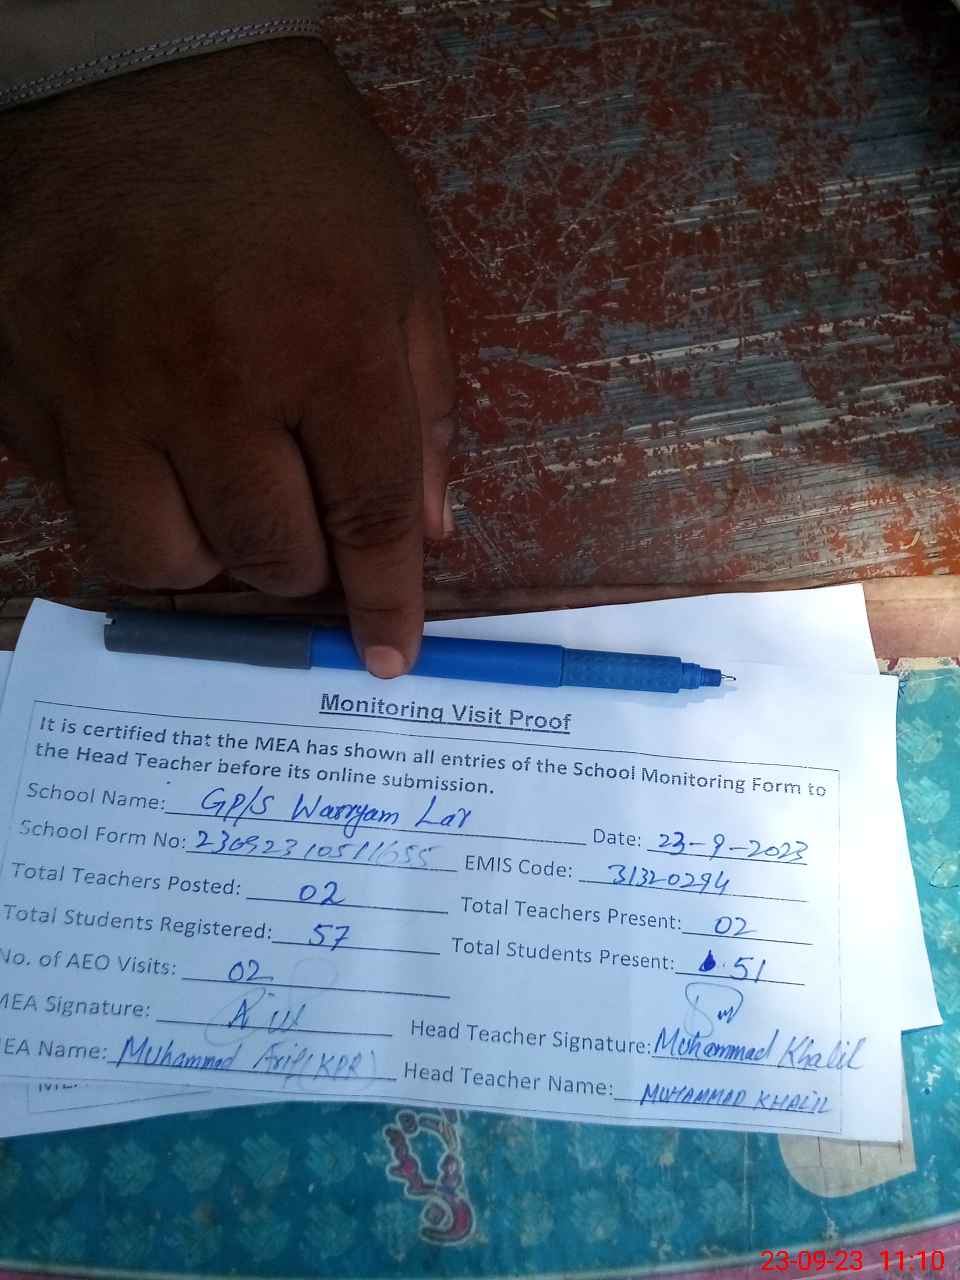 Monitoring Visit Proof
It is certified that the MEA has shown all entries of the School Monitoring Form to
the Head Teacher before its online submission.
School Name: GP/S Warryam Lar
Date: 23-9-2023
School Form No: 23092310511655
EMIS Code: 31320294
Total Teachers Posted: 02
Total Teachers Present: 02
Total Students Registered: 57
Total Students Present: 51
No. of AEO Visits: 02
MEA Signature:
Head Teacher Signature: Mohammad Khalil
MEA Name: Muhammad Arif (KPR)
Head Teacher Name: MUHAMMAD KHALIL
23-09-23 11:10